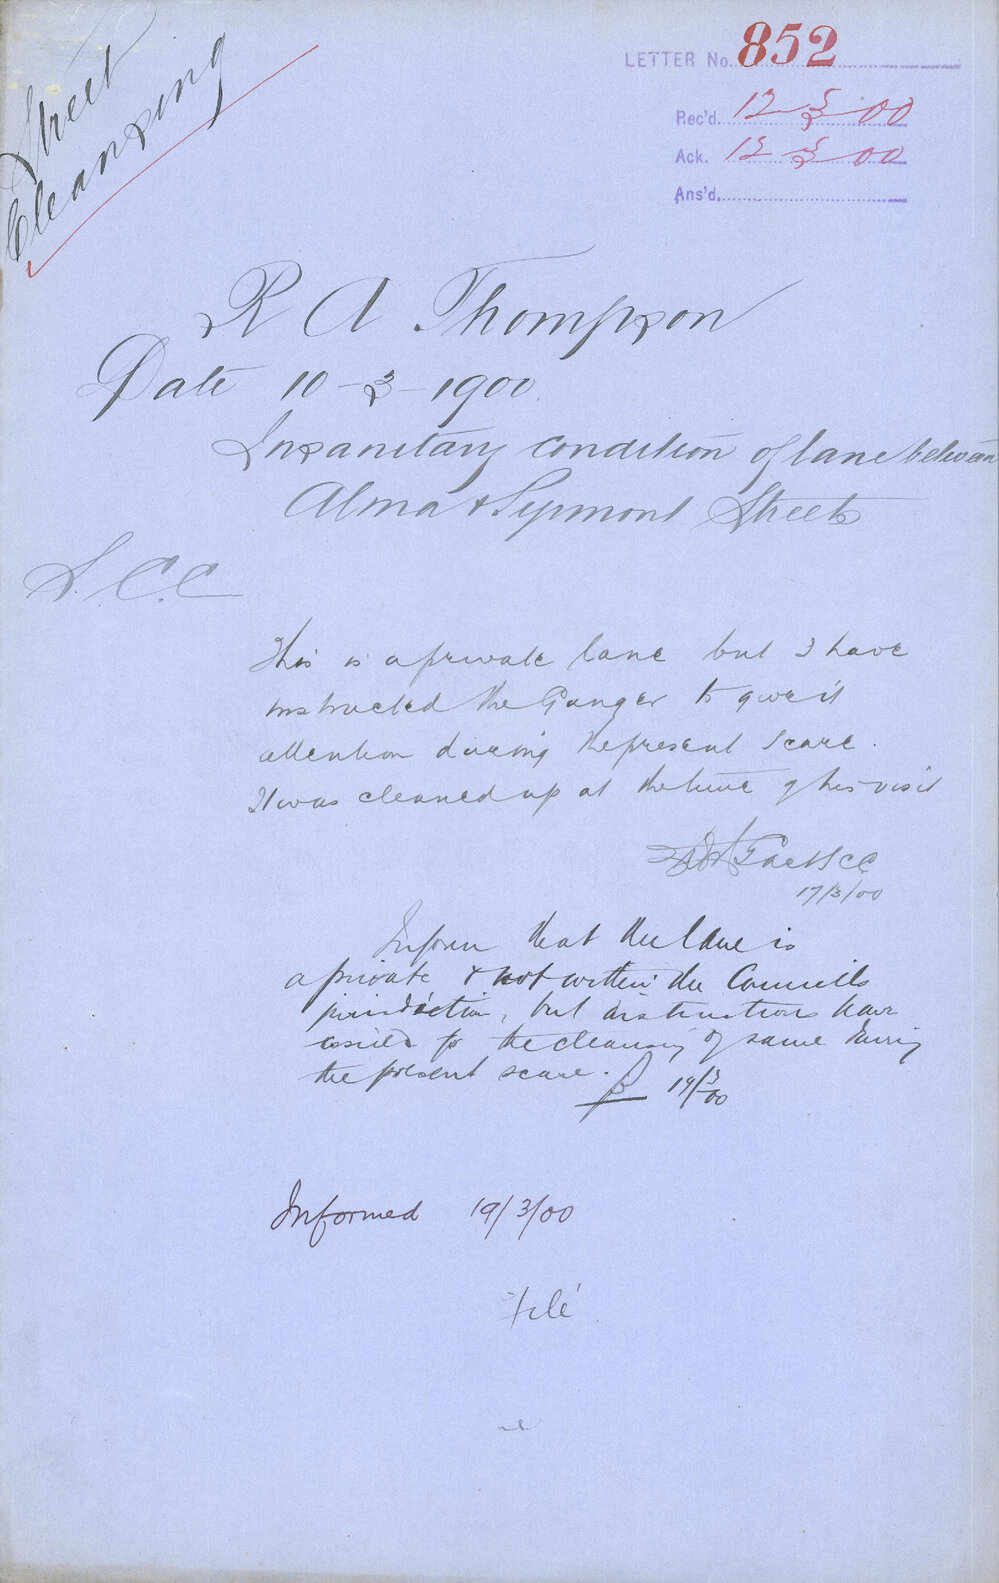 Street
Cleansing
LETTER No. 852
Rec'd. 12 3 00
Ack. 12 3 00
Ans'd.
R A Thompson
Date 10-3-1900.
Insanitary condition of lane between
Alma & Seymont Streets
S. C. C
This is a private lane but I have
instructed the Ganger to give it
attention during the present scare.
It was cleaned up at the time of his visit
SCC
17/3/00
Inform that the lane is
a private & not within the Councils
jurisdiction, but instructions have
issued for the cleansing of same during
the present scare.
19/3/00
Informed 19/3/00
File